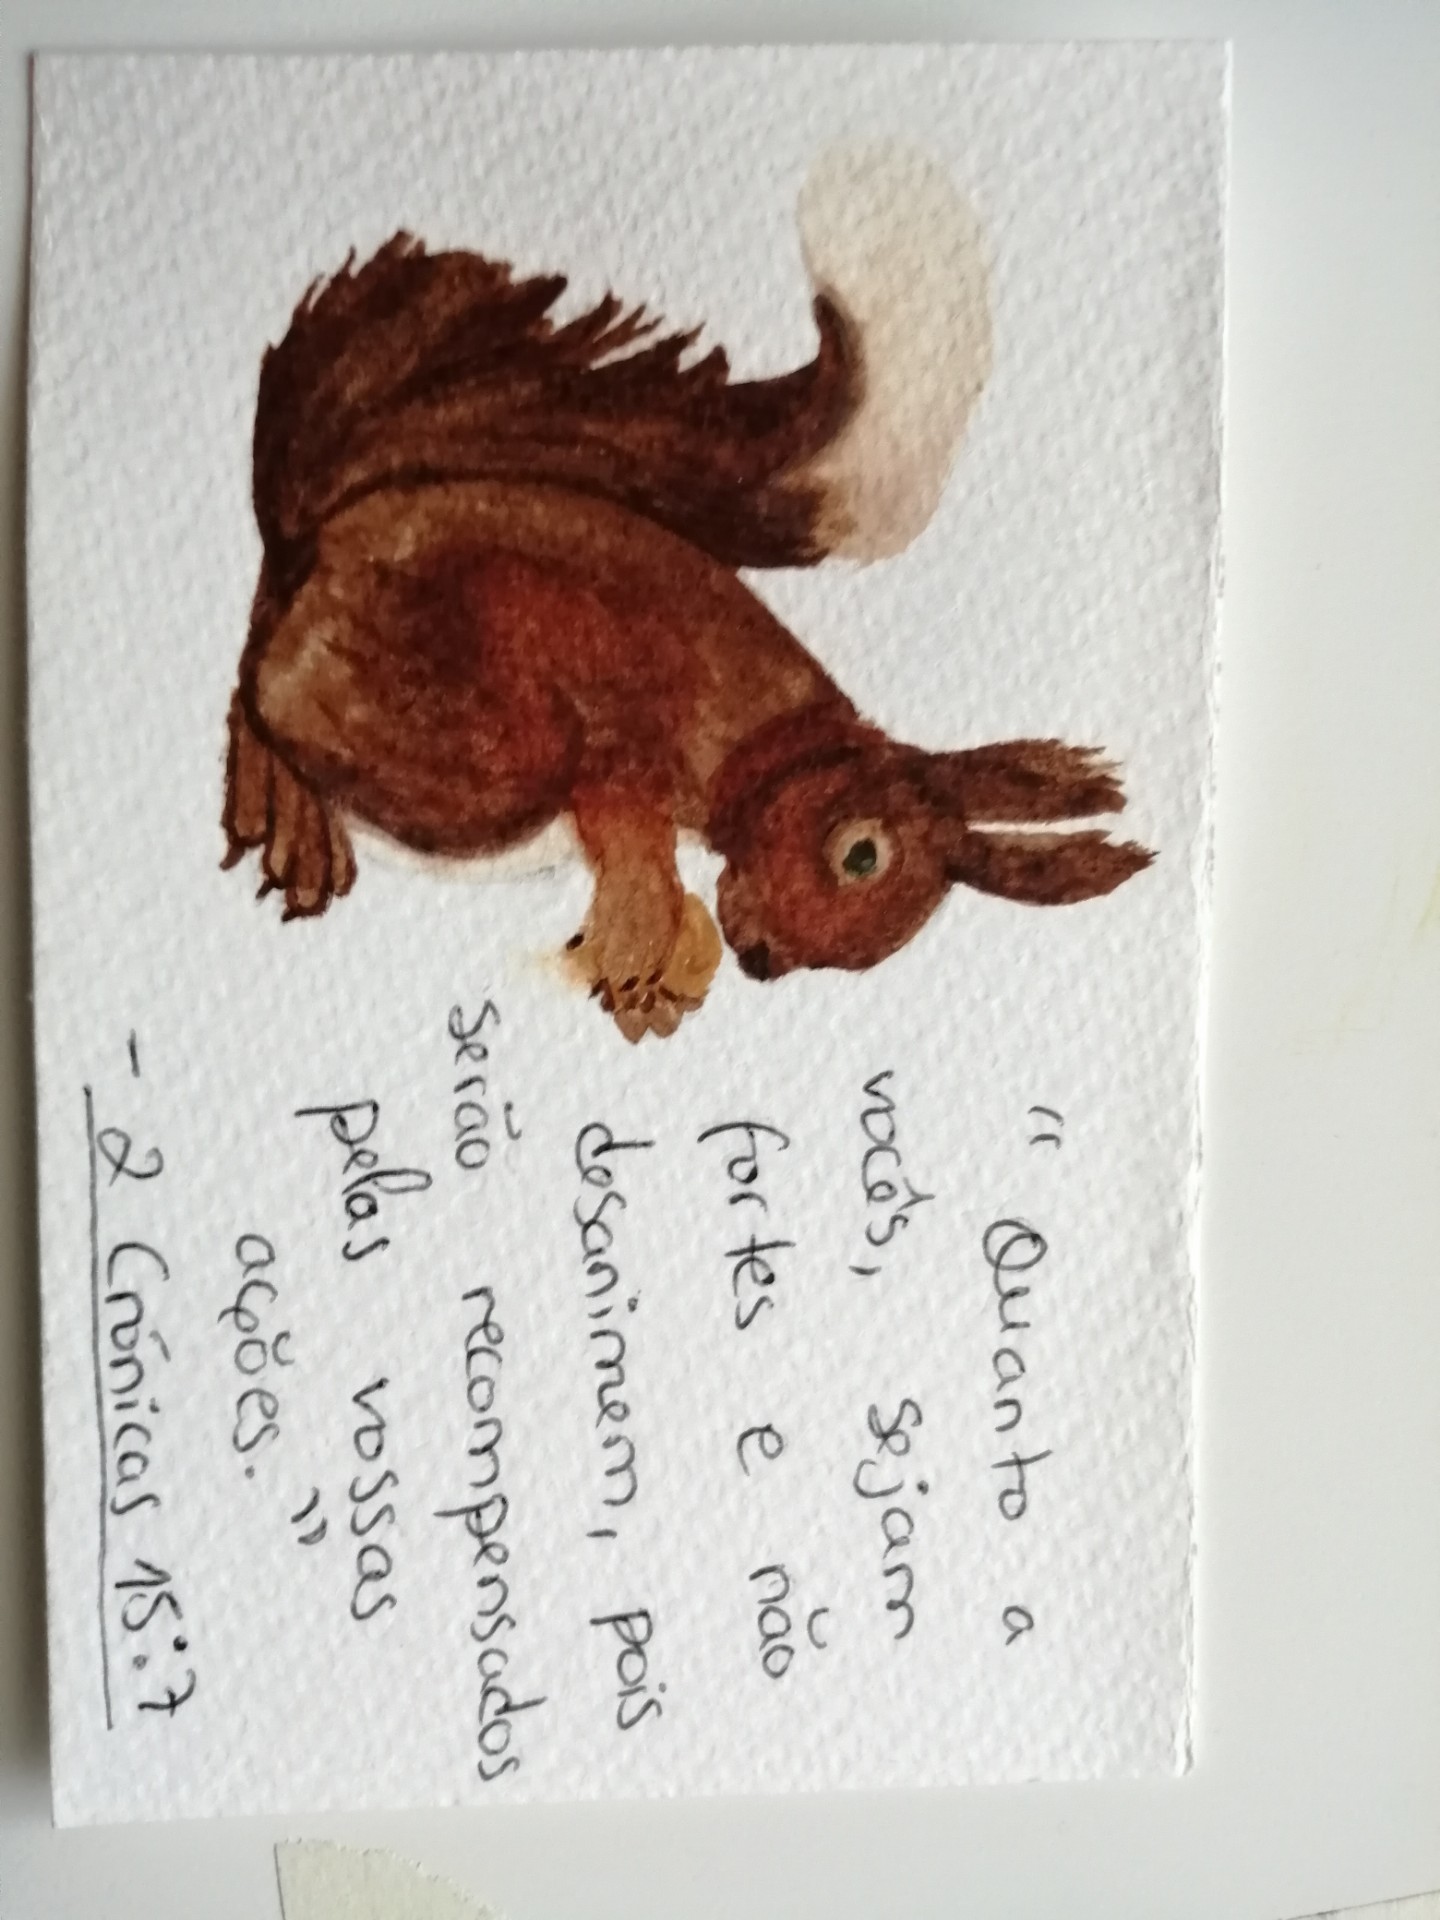 “ Quanto a
vocês, sejam
fortes e não
desanimem, pois
serão recompensados
pelas vossas
ações.”
- 2 Crónicas 15:7